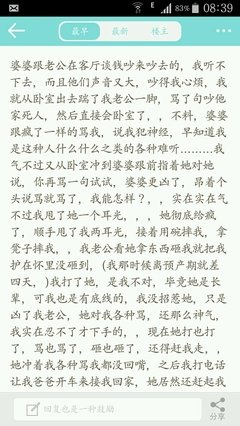 E 83% 08:39
最早 最新 楼主
婆婆跟老公在客厅谈钱吵来吵去的，我听不
下去，而且他们声音又大，吵得我心烦，我
就从卧室出去踹了我老公一脚，骂了句吵他
家死人，然后直接会卧室了，，不料，婆婆
跟疯了一样的骂我，说我犯神经，早知道我
是这种人什么什么之类的各种难听………我
气不过又从卧室冲到婆婆跟前指着她对她
说，你再骂一句试试，婆婆更凶了，昂着个
头说骂就骂了，我能怎样？，，实在实在气
不过我甩了她一个耳光，，，她彻底给疯
了，顺手甩了我两耳光，接着用碗摔我，拿
凳子摔我，，，我老公看她拿东西砸我就把我
护在怀里没砸到，(我那时候离预产期就差
四天，)我打了她，是我不对，毕竟她是长
辈，可我也是有底线的，我没招惹她，只是
凶了我老公，她对我各种骂，还那么神气，
我实在忍不了才下手的，，现在她打也打
了，骂也骂了，砸也砸了，还得赶我走，，
她冲着我各种骂我都没回嘴，之后我打电话
让我爸爸开车来接我回家，她居然还赶起我
回复也是一种鼓励 分享